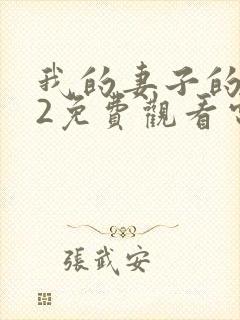 我的妻子的
2免費觀看
張武安